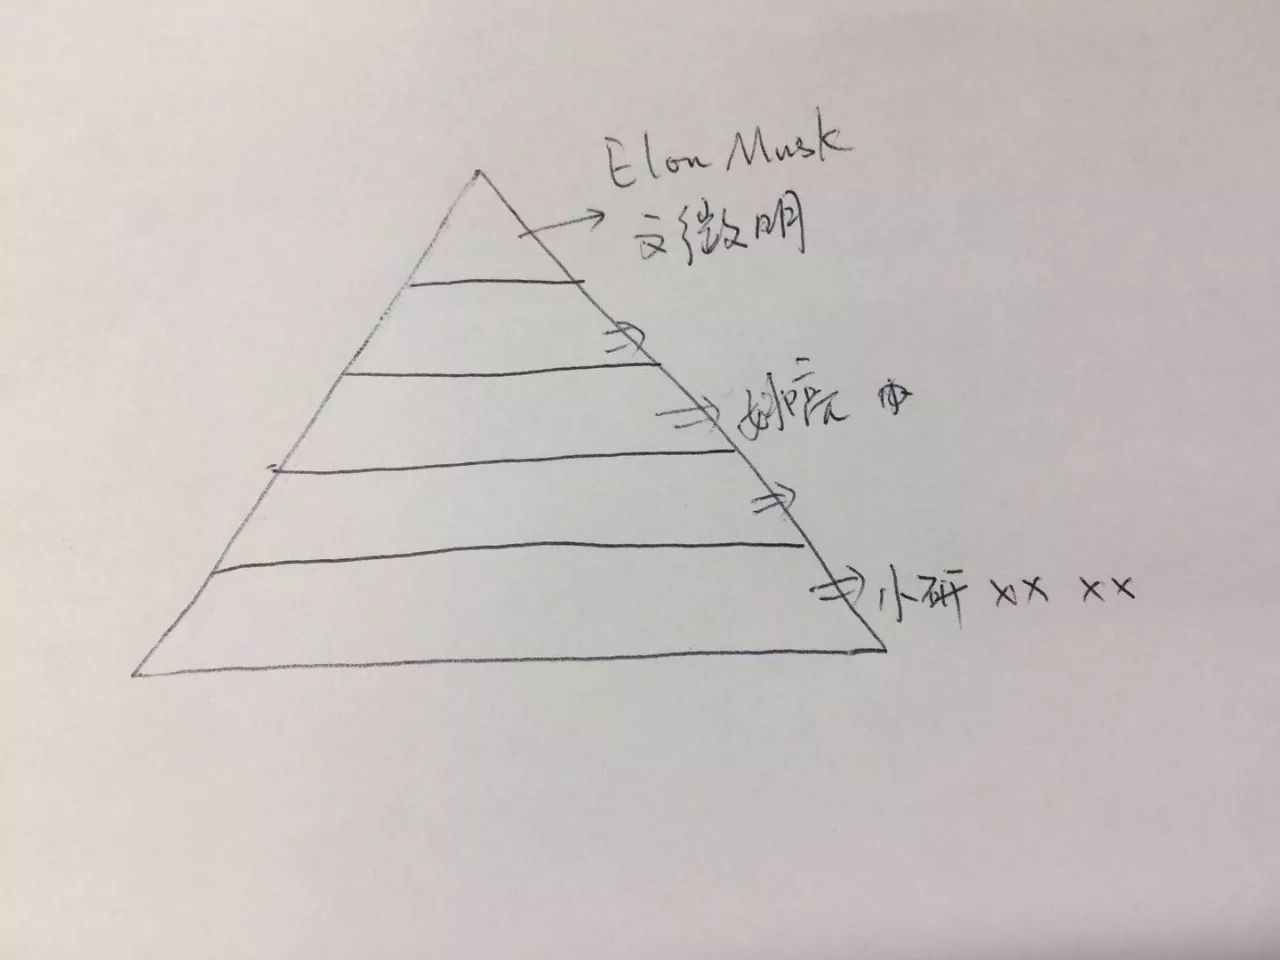 Elon Musk
文徵明
小研 xx xx